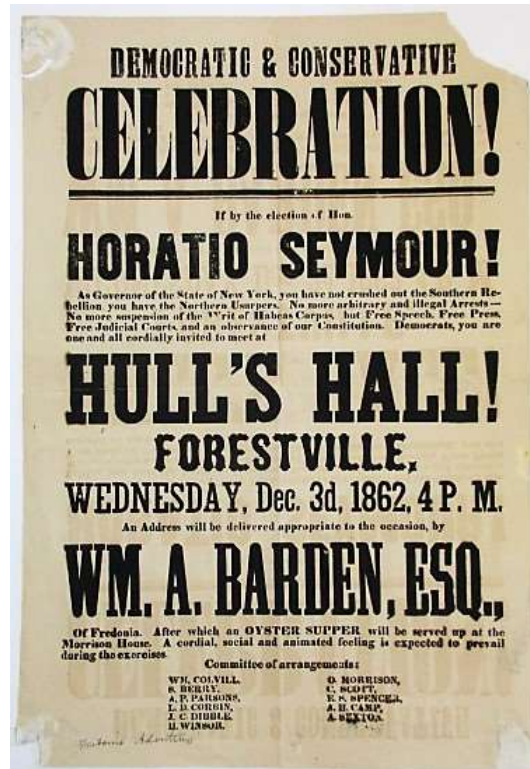 DEMOCRATIC & CONSERVATIVE
CELEBRATION!
If by the election of Hon.
HORATIO SEYMOUR!
As Governor of the State of New York, you have not crushed out the Southern Re-
bellion, you have the Northern Usurpers. No more arbitrary and illegal Arrests—
No more suspension of the Writ of Habeas Corpus, but Free Speech, Free Press,
Free Judicial Courts, and an observance of our Constitution. Democrats, you are
one and all cordially invited to meet at
HULL'S HALL!
FORESTVILLE,
WEDNESDAY, Dec. 3d, 1862, 4 P. M.
An Address will be delivered appropriate to the occasion, by
WM. A. BARDEN, ESQ.,
Of Fredonia. After which an OYSTER SUPPER will be served up at the
Morrison House. A cordial, social and animated feeling is expected to prevail
during the exercises.
Committee of arrangements:
WM. COLVILL,
S. BERRY,
A. P. PARSONS,
L. D. CORBIN,
J. C. DIBBLE,
H. WINSOR,
O. MORRISON,
C. SCOTT,
E. S. SPENCER,
A. H. CAMP,
A. SEXTON.